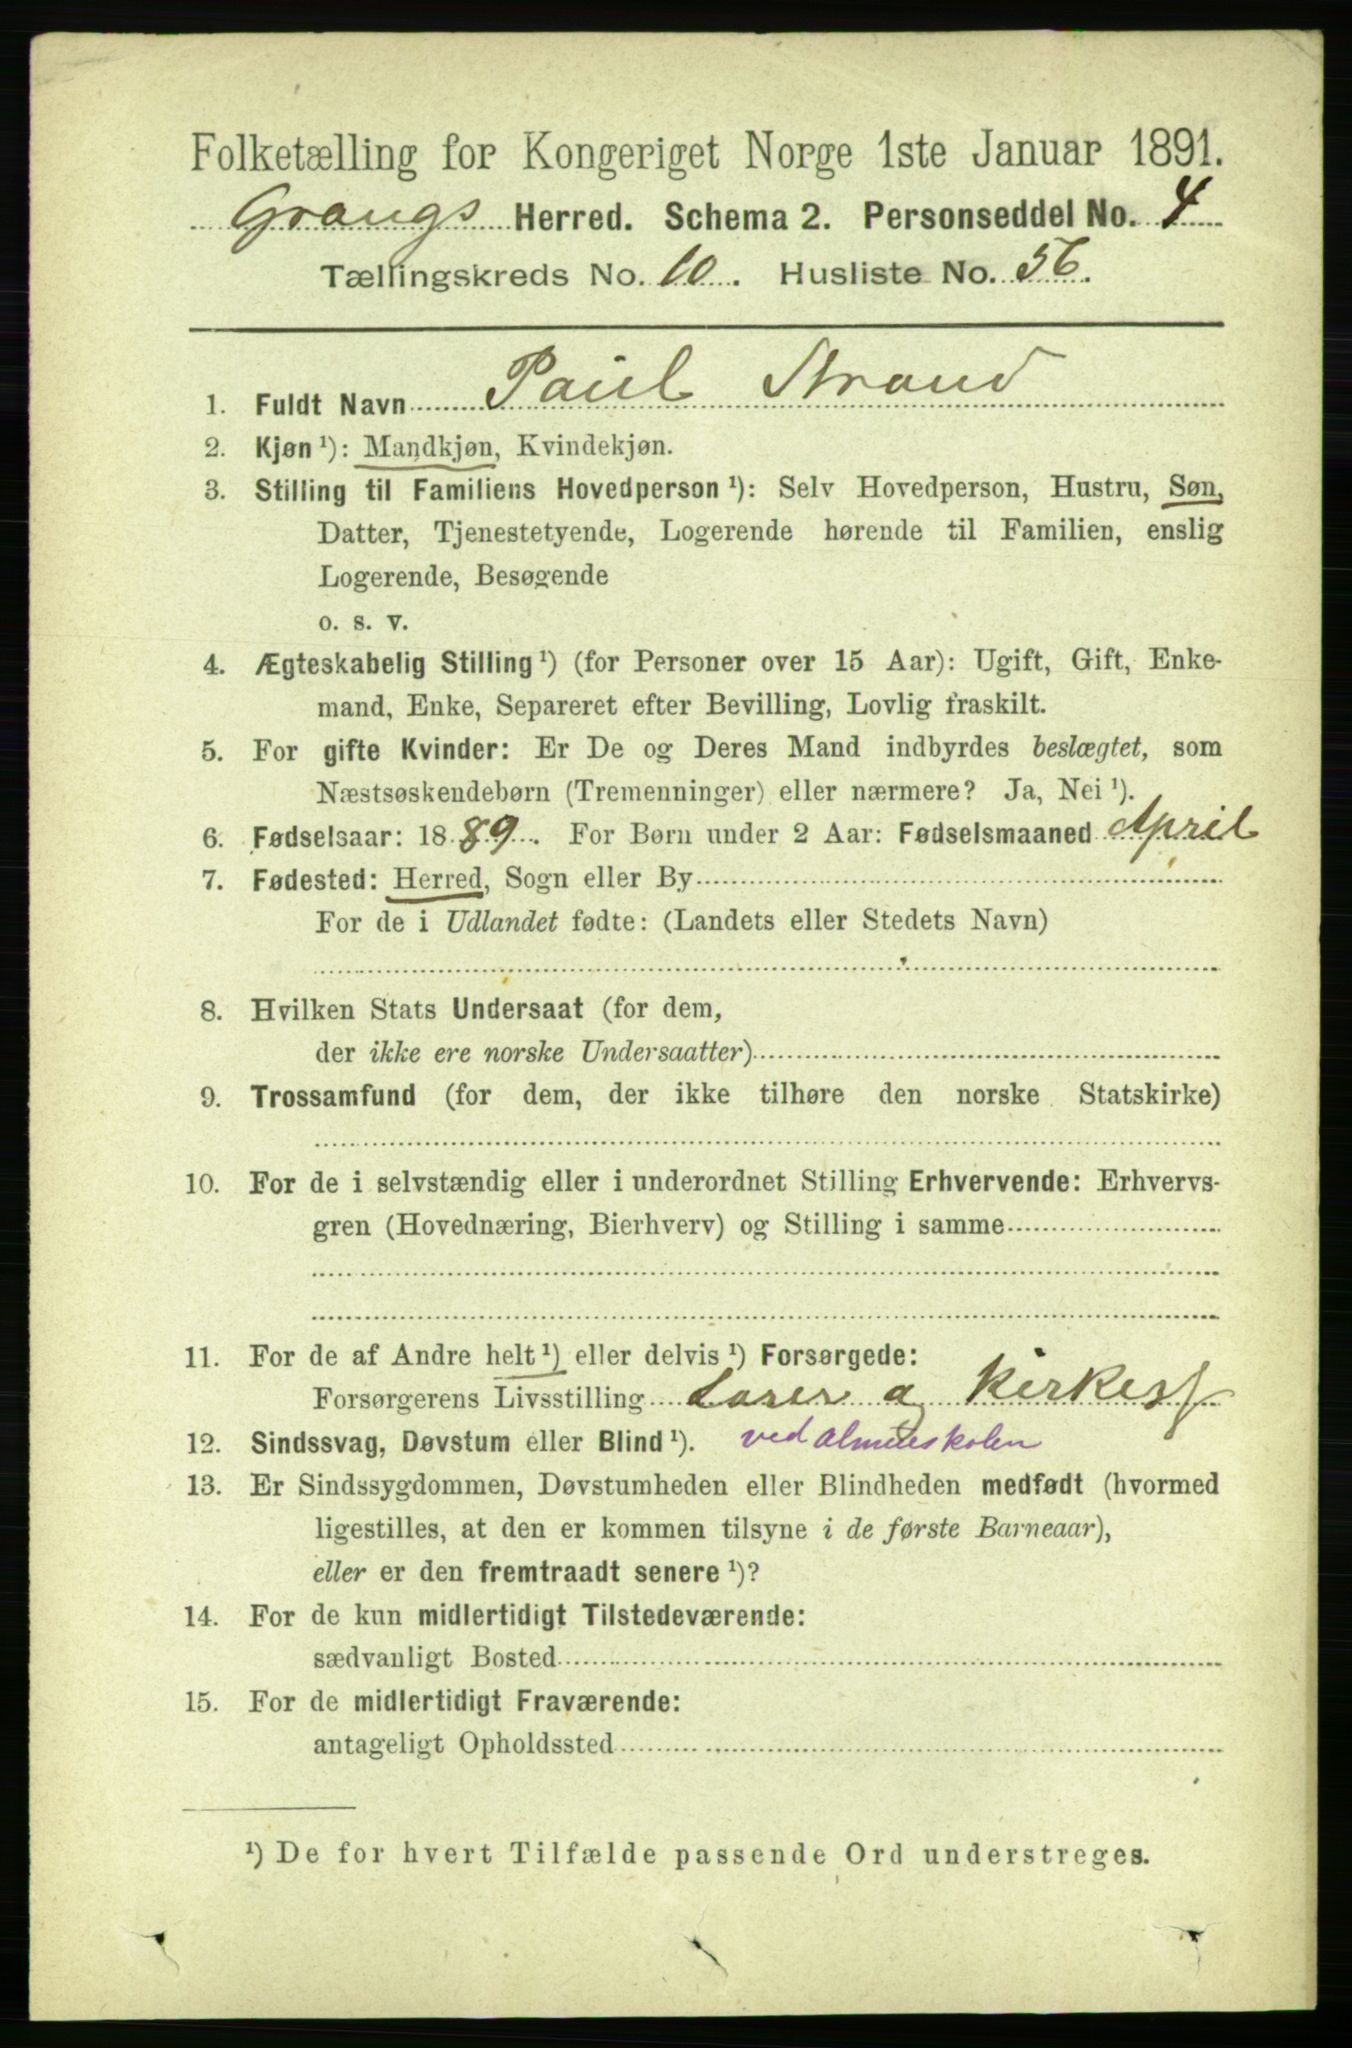 Folketælling for Kongeriget Norge 1ste Januar 1891.
Grangs Herred. Schema 2. Personseddel No. 4
Tællingskreds No. 10. Husliste No. 56.
1. Fuldt Navn Paul Strand
2. Kjøn ¹): Mandkjøn, Kvindekjøn.
3. Stilling til Familiens Hovedperson ¹): Selv Hovedperson, Hustru, Søn,
Datter, Tjenestetyende, Logerende hørende til Familien, enslig
Logerende, Besøgende
o. s. v.
4. Ægteskabelig Stilling ¹) (for Personer over 15 Aar): Ugift, Gift, Enke-
mand, Enke, Separeret efter Bevilling, Lovlig fraskilt.
5. For gifte Kvinder: Er De og Deres Mand indbyrdes beslægtet, som
Næstsøskendebørn (Tremenninger) eller nærmere? Ja, Nei ¹).
6. Fødselsaar: 1889. For Børn under 2 Aar: Fødselsmaaned April
7. Fødested: Herred, Sogn eller By
For de i Udlandet fødte: (Landets eller Stedets Navn)
8. Hvilken Stats Undersaat (for dem,
der ikke ere norske Undersaatter)
9. Trossamfund (for dem, der ikke tilhøre den norske Statskirke)
10. For de i selvstændig eller i underordnet Stilling Erhvervende: Erhvervs-
gren (Hovednæring, Bierhverv) og Stilling i samme
11. For de af Andre helt ¹) eller delvis ¹) Forsørgede:
Forsørgerens Livsstilling Lærer og Kirkes
12. Sindssvag, Døvstum eller Blind ¹). ved Almueskolen
13. Er Sindssygdommen, Døvstumheden eller Blindheden medfødt (hvormed
ligestilles, at den er kommen tilsyne i de første Barneaar),
eller er den fremtraadt senere ¹)?
14. For de kun midlertidigt Tilstedeværende:
sædvanligt Bosted
15. For de midlertidigt Fraværende:
antageligt Opholdssted
¹) De for hvert Tilfælde passende Ord understreges.